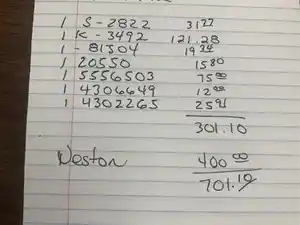 1 S-2822 31 27
1 K-3492 121.28
1 - 81504 19 34
1 20550 15 80
1 5556503 75 00
1 4306649 12 00
1 4302265 25 91
301.10
Weston 400 00
701.10